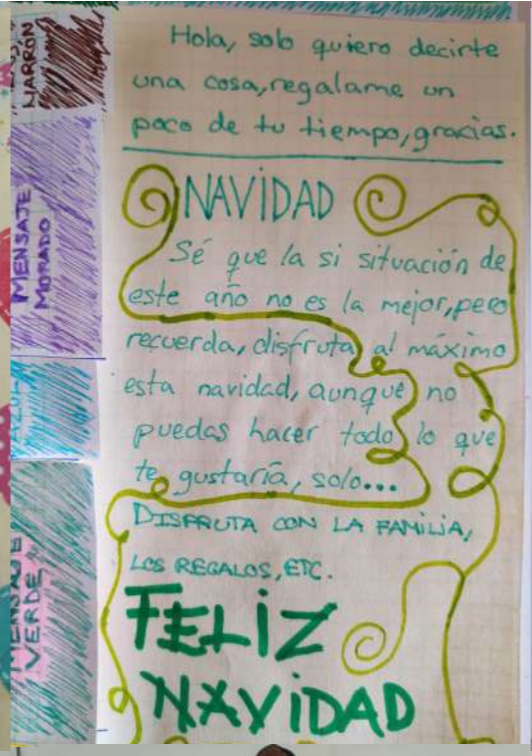 MARRÓN
MENSAJE
MORADO
AZUL
MENSAJE
VERDE
Hola, solo quiero decirte
una cosa, regalame un
poco de tu tiempo, gracias.
NAVIDAD
Sé que la si situación de
este año no es la mejor, pero
recuerda, disfruta al máximo
esta navidad, aunque no
puedas hacer todo lo que
te gustaría, solo...
DISFRUTA CON LA FAMILIA,
LOS REGALOS, ETC.
FELIZ
NAVIDAD